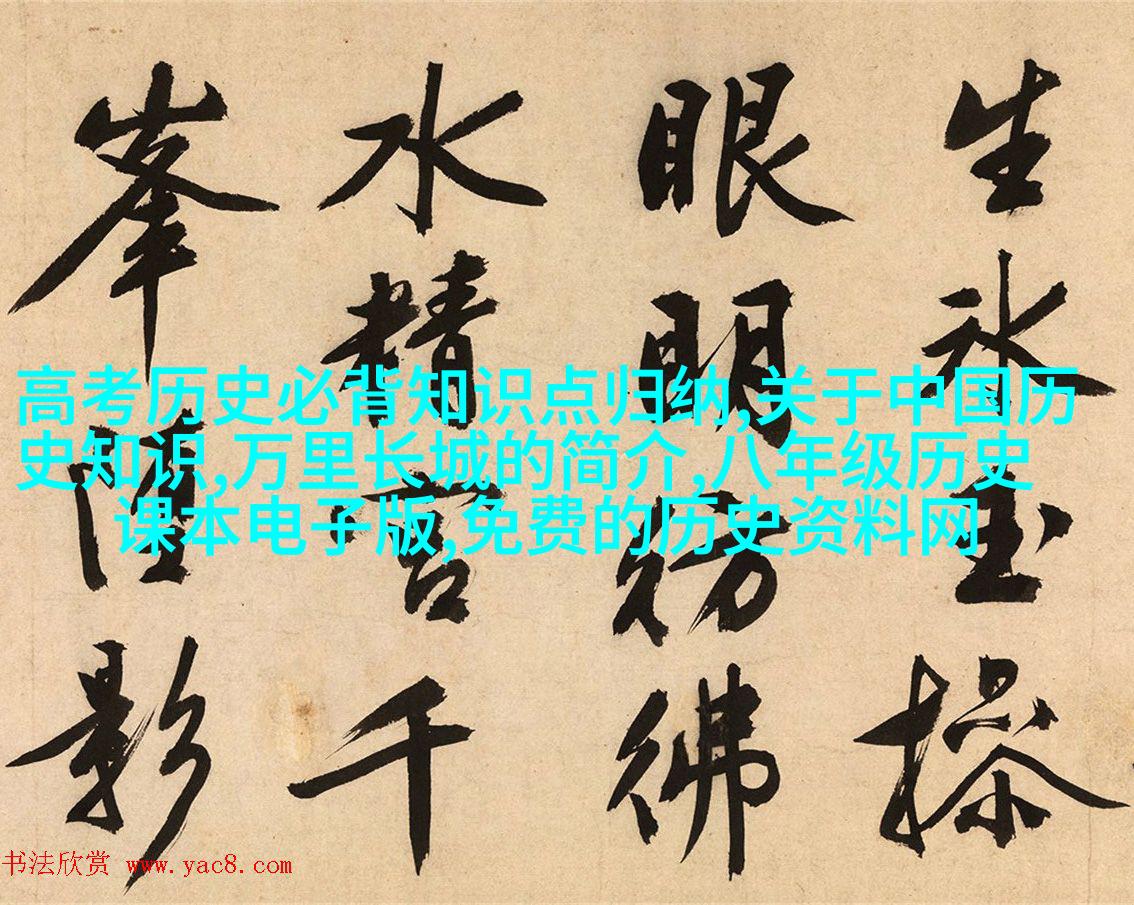 生氷玉操
眼明彷彿
水精宫千
峯影
高考历史必背知识点归纳,关于中国历
史知识,万里长城的简介,八年级历史
课本电子版,免费的历史资料网
书法欣赏 www.yac8.com